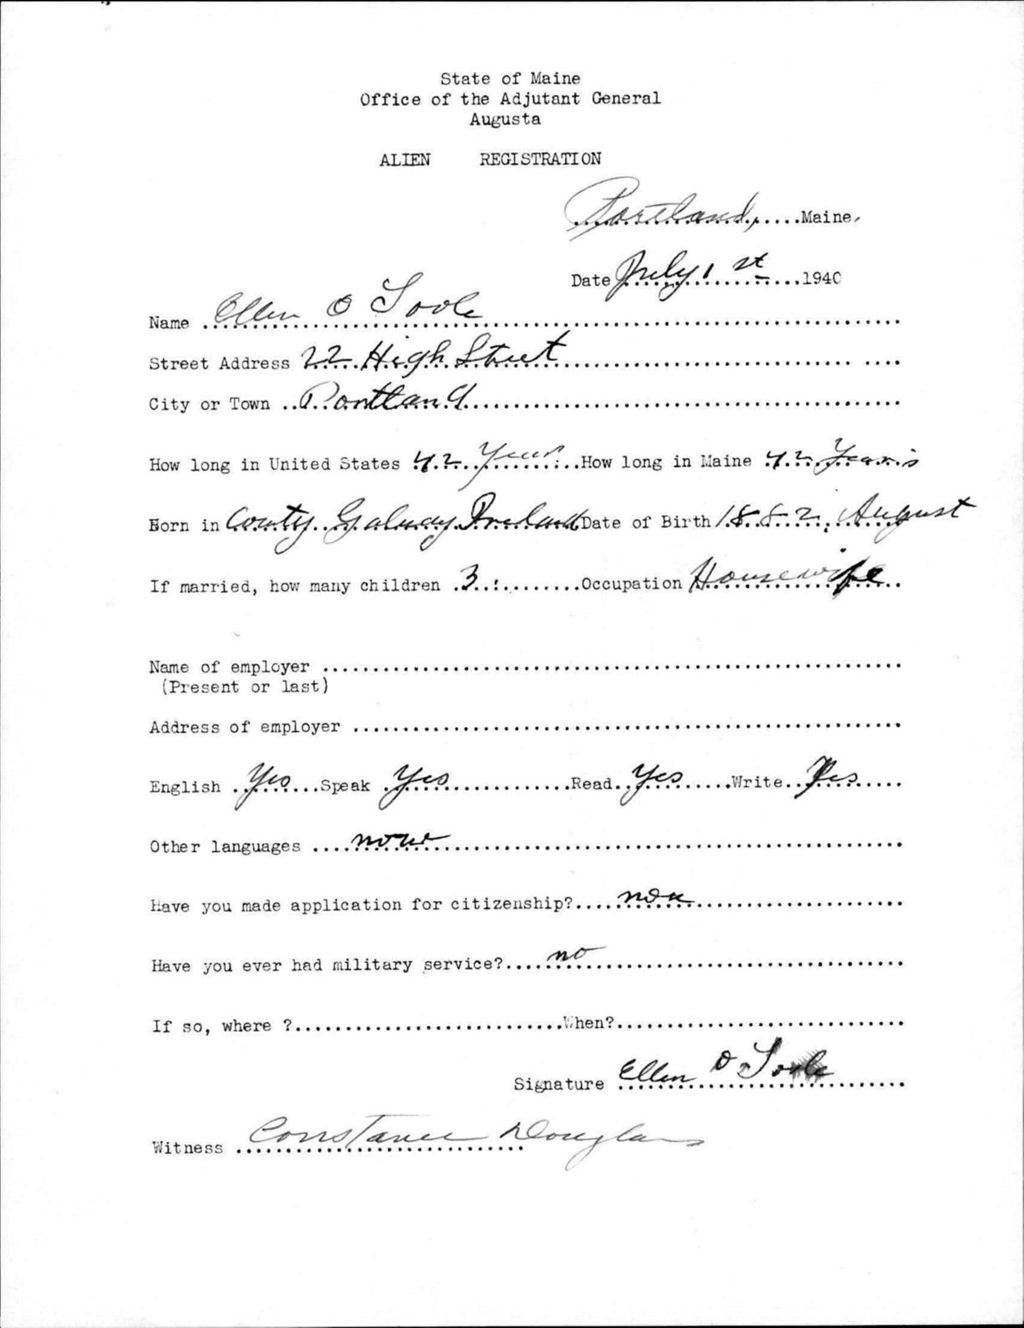 State of Maine
Office of the Adjutant General
Augusta
ALIEN REGISTRATION
Portland, Maine.
Date July 1 st 1940
Name Ellen O Toole
Street Address 22 High Street
City or Town Portland
How long in United States 42 Years How long in Maine 42 Years
Born in County Galway Ireland Date of Birth 1882, August
If married, how many children 3 Occupation Housewife
Name of employer
(Present or last)
Address of employer
English Yes Speak Yes Read Yes Write Yes
Other languages
Have you made application for citizenship?
Have you ever had military service? no
If so, where ? When?
Signature Ellen O Toole
Witness Constance Douglass